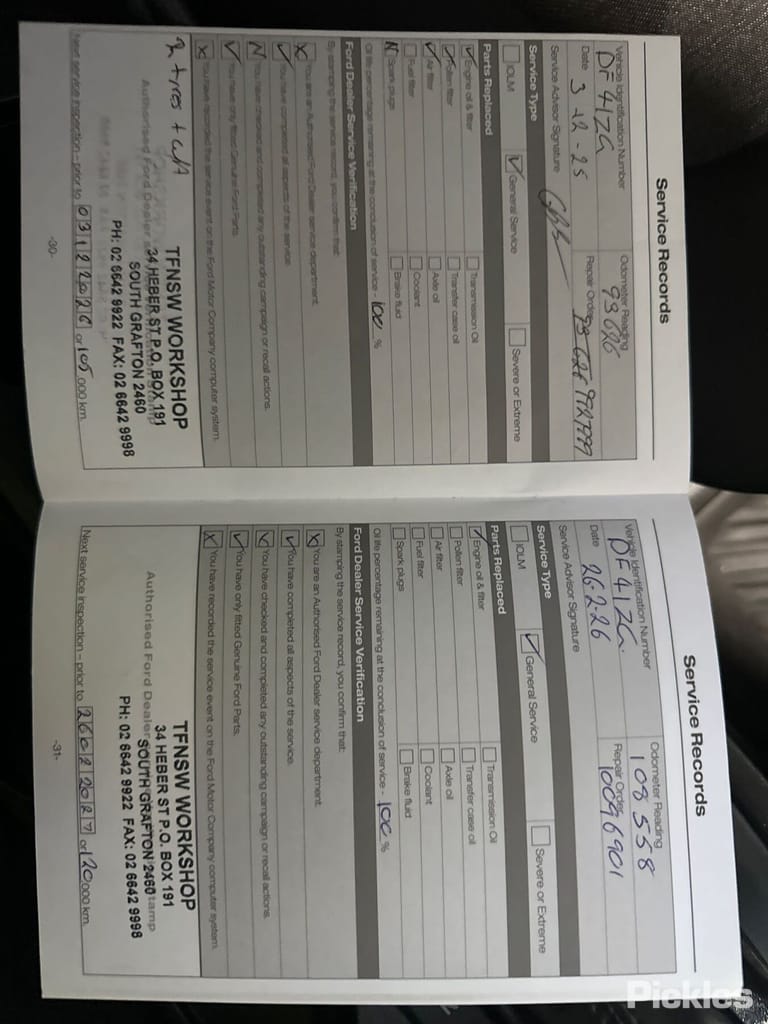 Service Records
Vehicle Identification Number
DF41ZG
Odometer Reading
93626
Date 3-12-25
Repair Order
Service Advisor Signature
Service Type
IOLM
General Service
Severe or Extreme
Parts Replaced
Engine oil & filter
Transmission Oil
Pollen filter
Transfer case oil
Air filter
Axle oil
Fuel filter
Coolant
N Spark plugs
Brake fluid
Oil life percentage remaining at the conclusion of service - 100 %
Ford Dealer Service Verification
By stamping the service record, you confirm that:
X You are an Authorised Ford Dealer service department.
You have completed all aspects of the service.
N You have checked and completed any outstanding campaign or recall actions.
You have only fitted Genuine Ford Parts.
X You have recorded the service event on the Ford Motor Company computer system.
TFNSW WORKSHOP
34 HEBER ST P.O. BOX 191
SOUTH GRAFTON 2460
PH: 02 6642 9922 FAX: 02 6642 9998
Authorised Ford Dealer
Next service inspection – prior to 03122026 or 105,000 km.
-30-
Service Records
Vehicle Identification Number
DF41ZG.
Odometer Reading
108558
Date 26.2.26
Repair Order
10096901
Service Advisor Signature
Service Type
IOLM
General Service
Severe or Extreme
Parts Replaced
Engine oil & filter
Transmission Oil
Pollen filter
Transfer case oil
Air filter
Axle oil
Fuel filter
Coolant
Spark plugs
Brake fluid
Oil life percentage remaining at the conclusion of service - 100 %
Ford Dealer Service Verification
By stamping the service record, you confirm that:
X You are an Authorised Ford Dealer service department.
You have completed all aspects of the service.
X You have checked and completed any outstanding campaign or recall actions.
You have only fitted Genuine Ford Parts.
X You have recorded the service event on the Ford Motor Company computer system.
TFNSW WORKSHOP
34 HEBER ST P.O. BOX 191
SOUTH GRAFTON 2460
PH: 02 6642 9922 FAX: 02 6642 9998
Authorised Ford Dealer stamp
Next service inspection – prior to 26022027 or 120,000 km.
-31-
Pickles